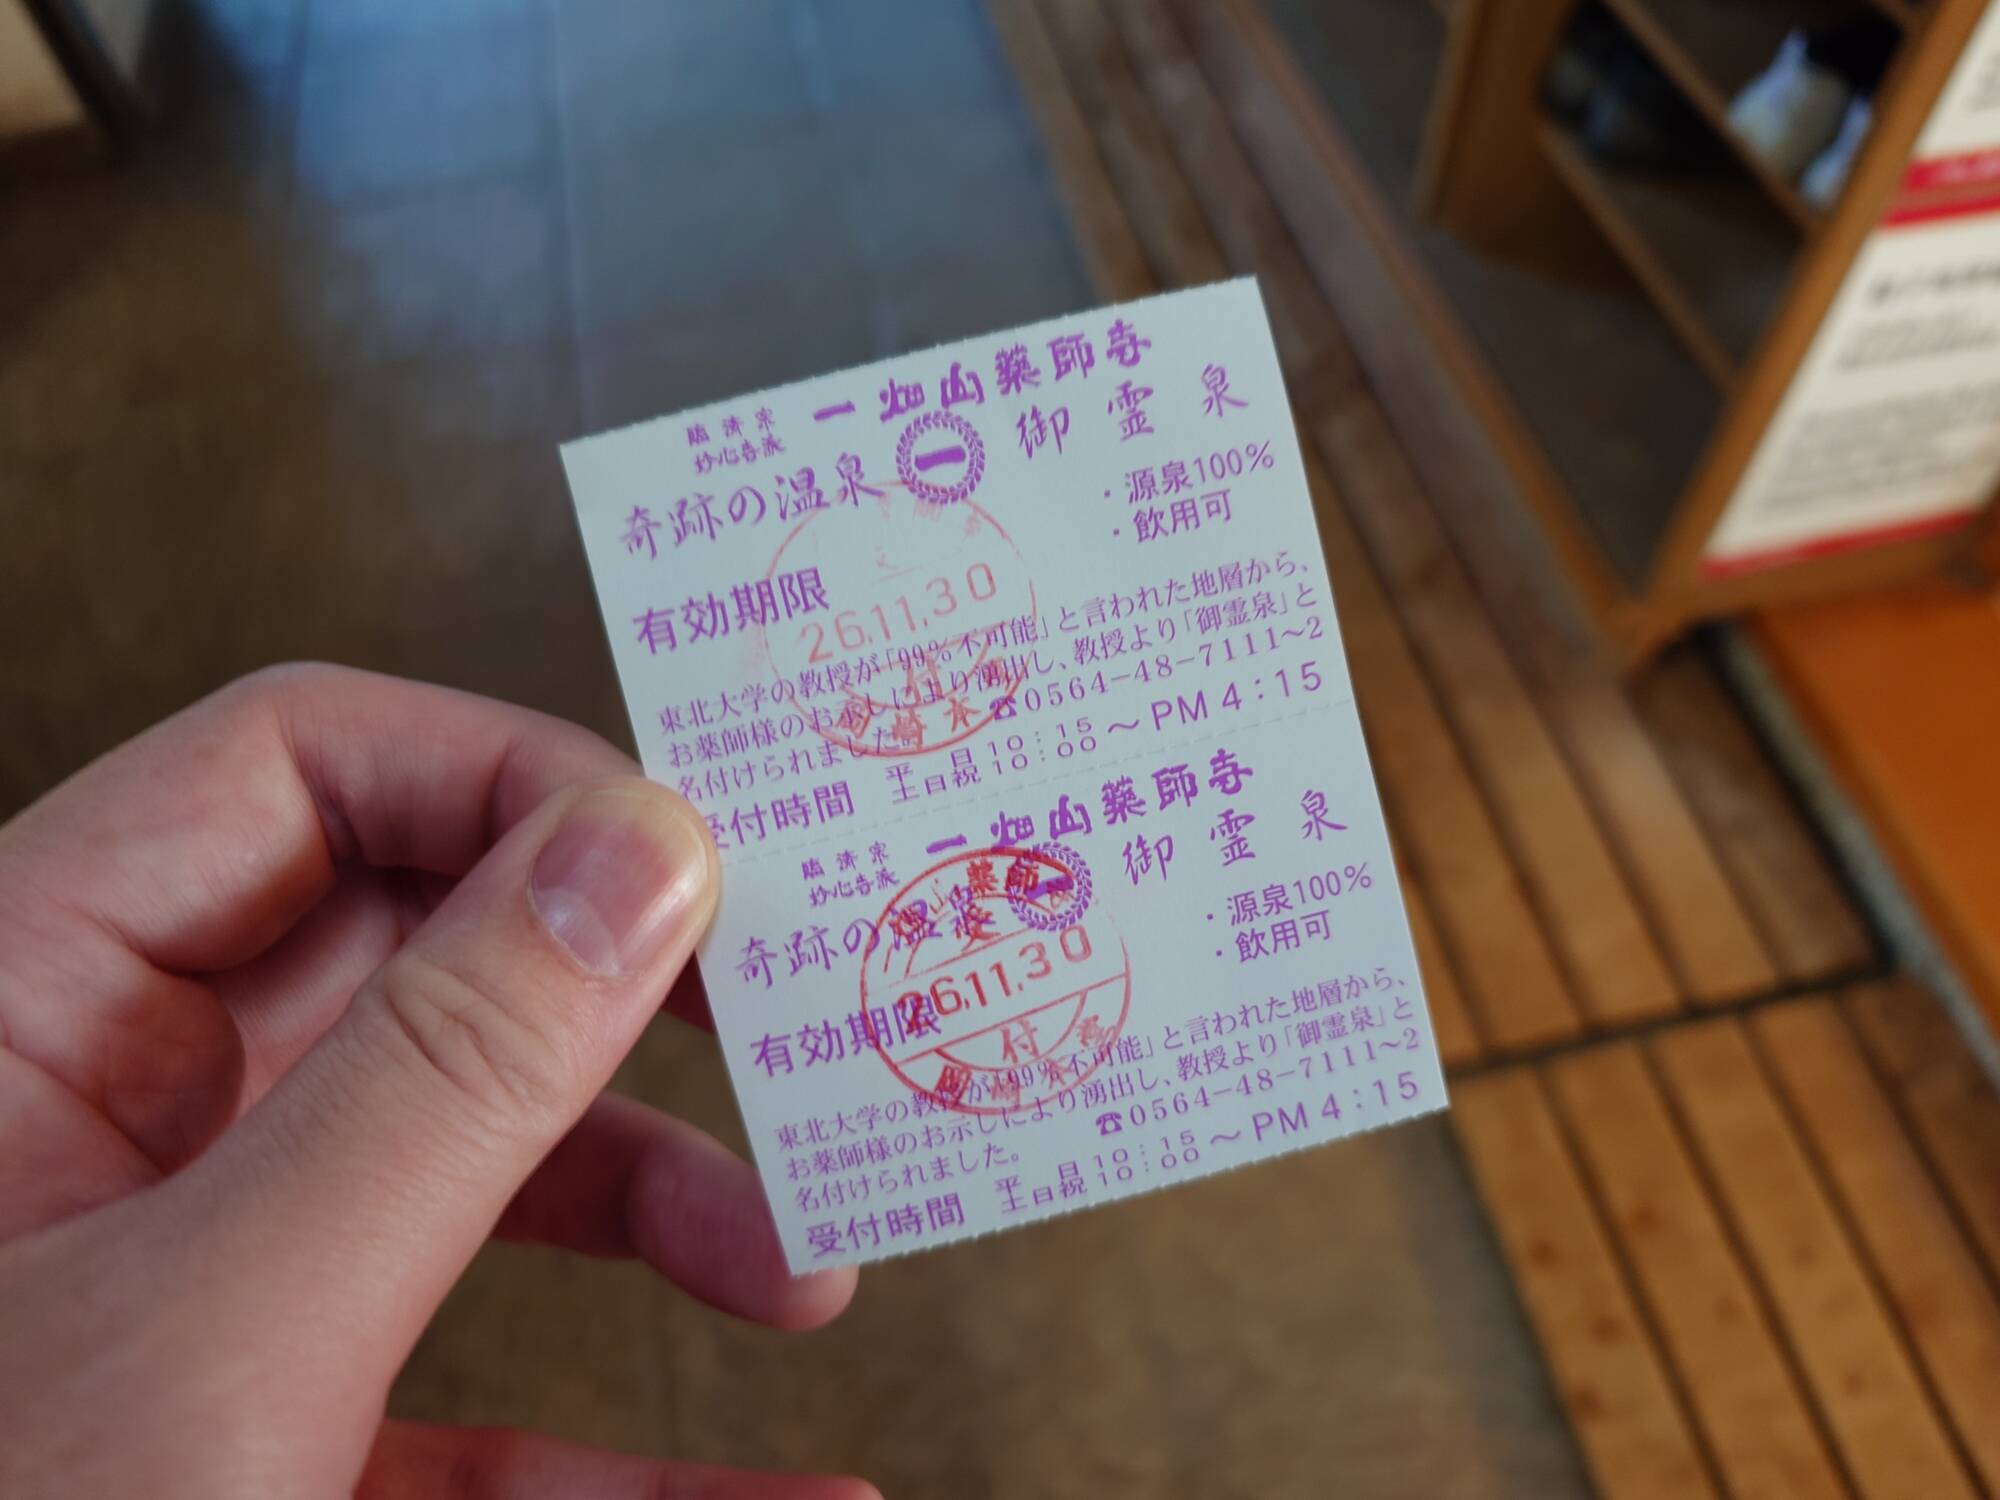 一畑山薬師寺
臨済宗
妙心寺派
御霊泉
奇跡の温泉
一
・源泉100%
・飲用可
有効期限
26.11.30
東北大学の教授が「99%不可能」と言われた地層から、
お薬師様のお示しにより湧出し、教授より「御霊泉」と
名付けられました。
☎0564-48-7111~2
受付時間 平日 10:15 土日祝 10:00 ～PM 4:15
一畑山薬師寺
臨済宗
妙心寺派
御霊泉
奇跡の温泉
一
・源泉100%
・飲用可
薬師
受
有効期限
26.11.30
付
東北大学の教授が「99%不可能」と言われた地層から、
お薬師様のお示しにより湧出し、教授より「御霊泉」と
名付けられました。
☎0564-48-7111~2
受付時間 平日 10:15 土日祝 10:00 ～PM 4:15